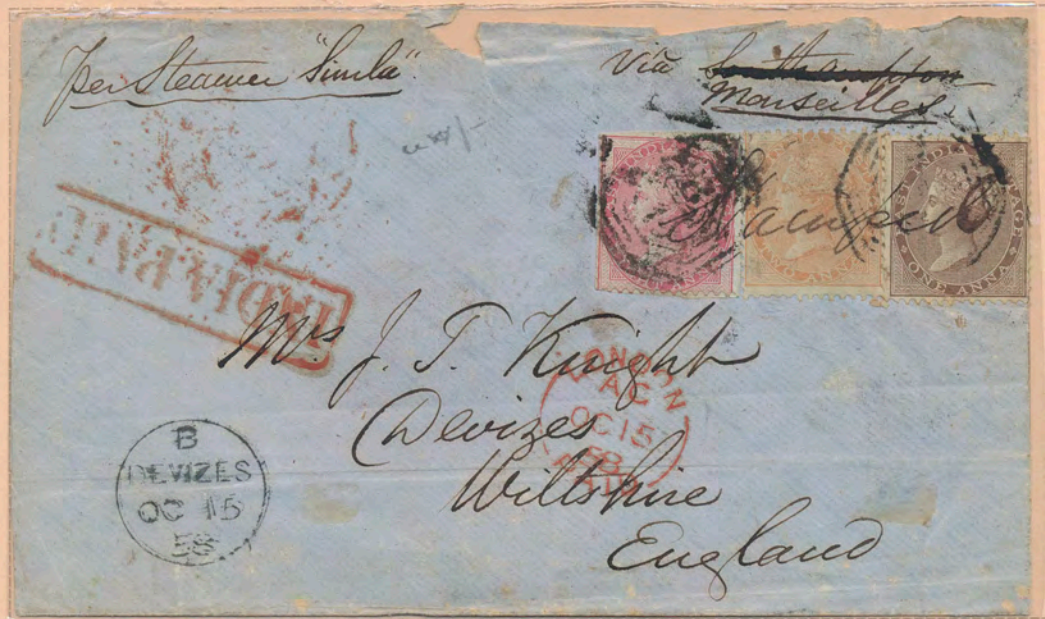 per Steamer "Simla"
Via Southampton
Marseilles
Stamped
TWO ANNA
EAST INDIA
ONE ANNA
INDIA PAID
Mrs J. T. Knight
Devizes
Wiltshire
England
LONDON
AC
OC 15
58
PAID
B
DEVIZES
OC 15
58